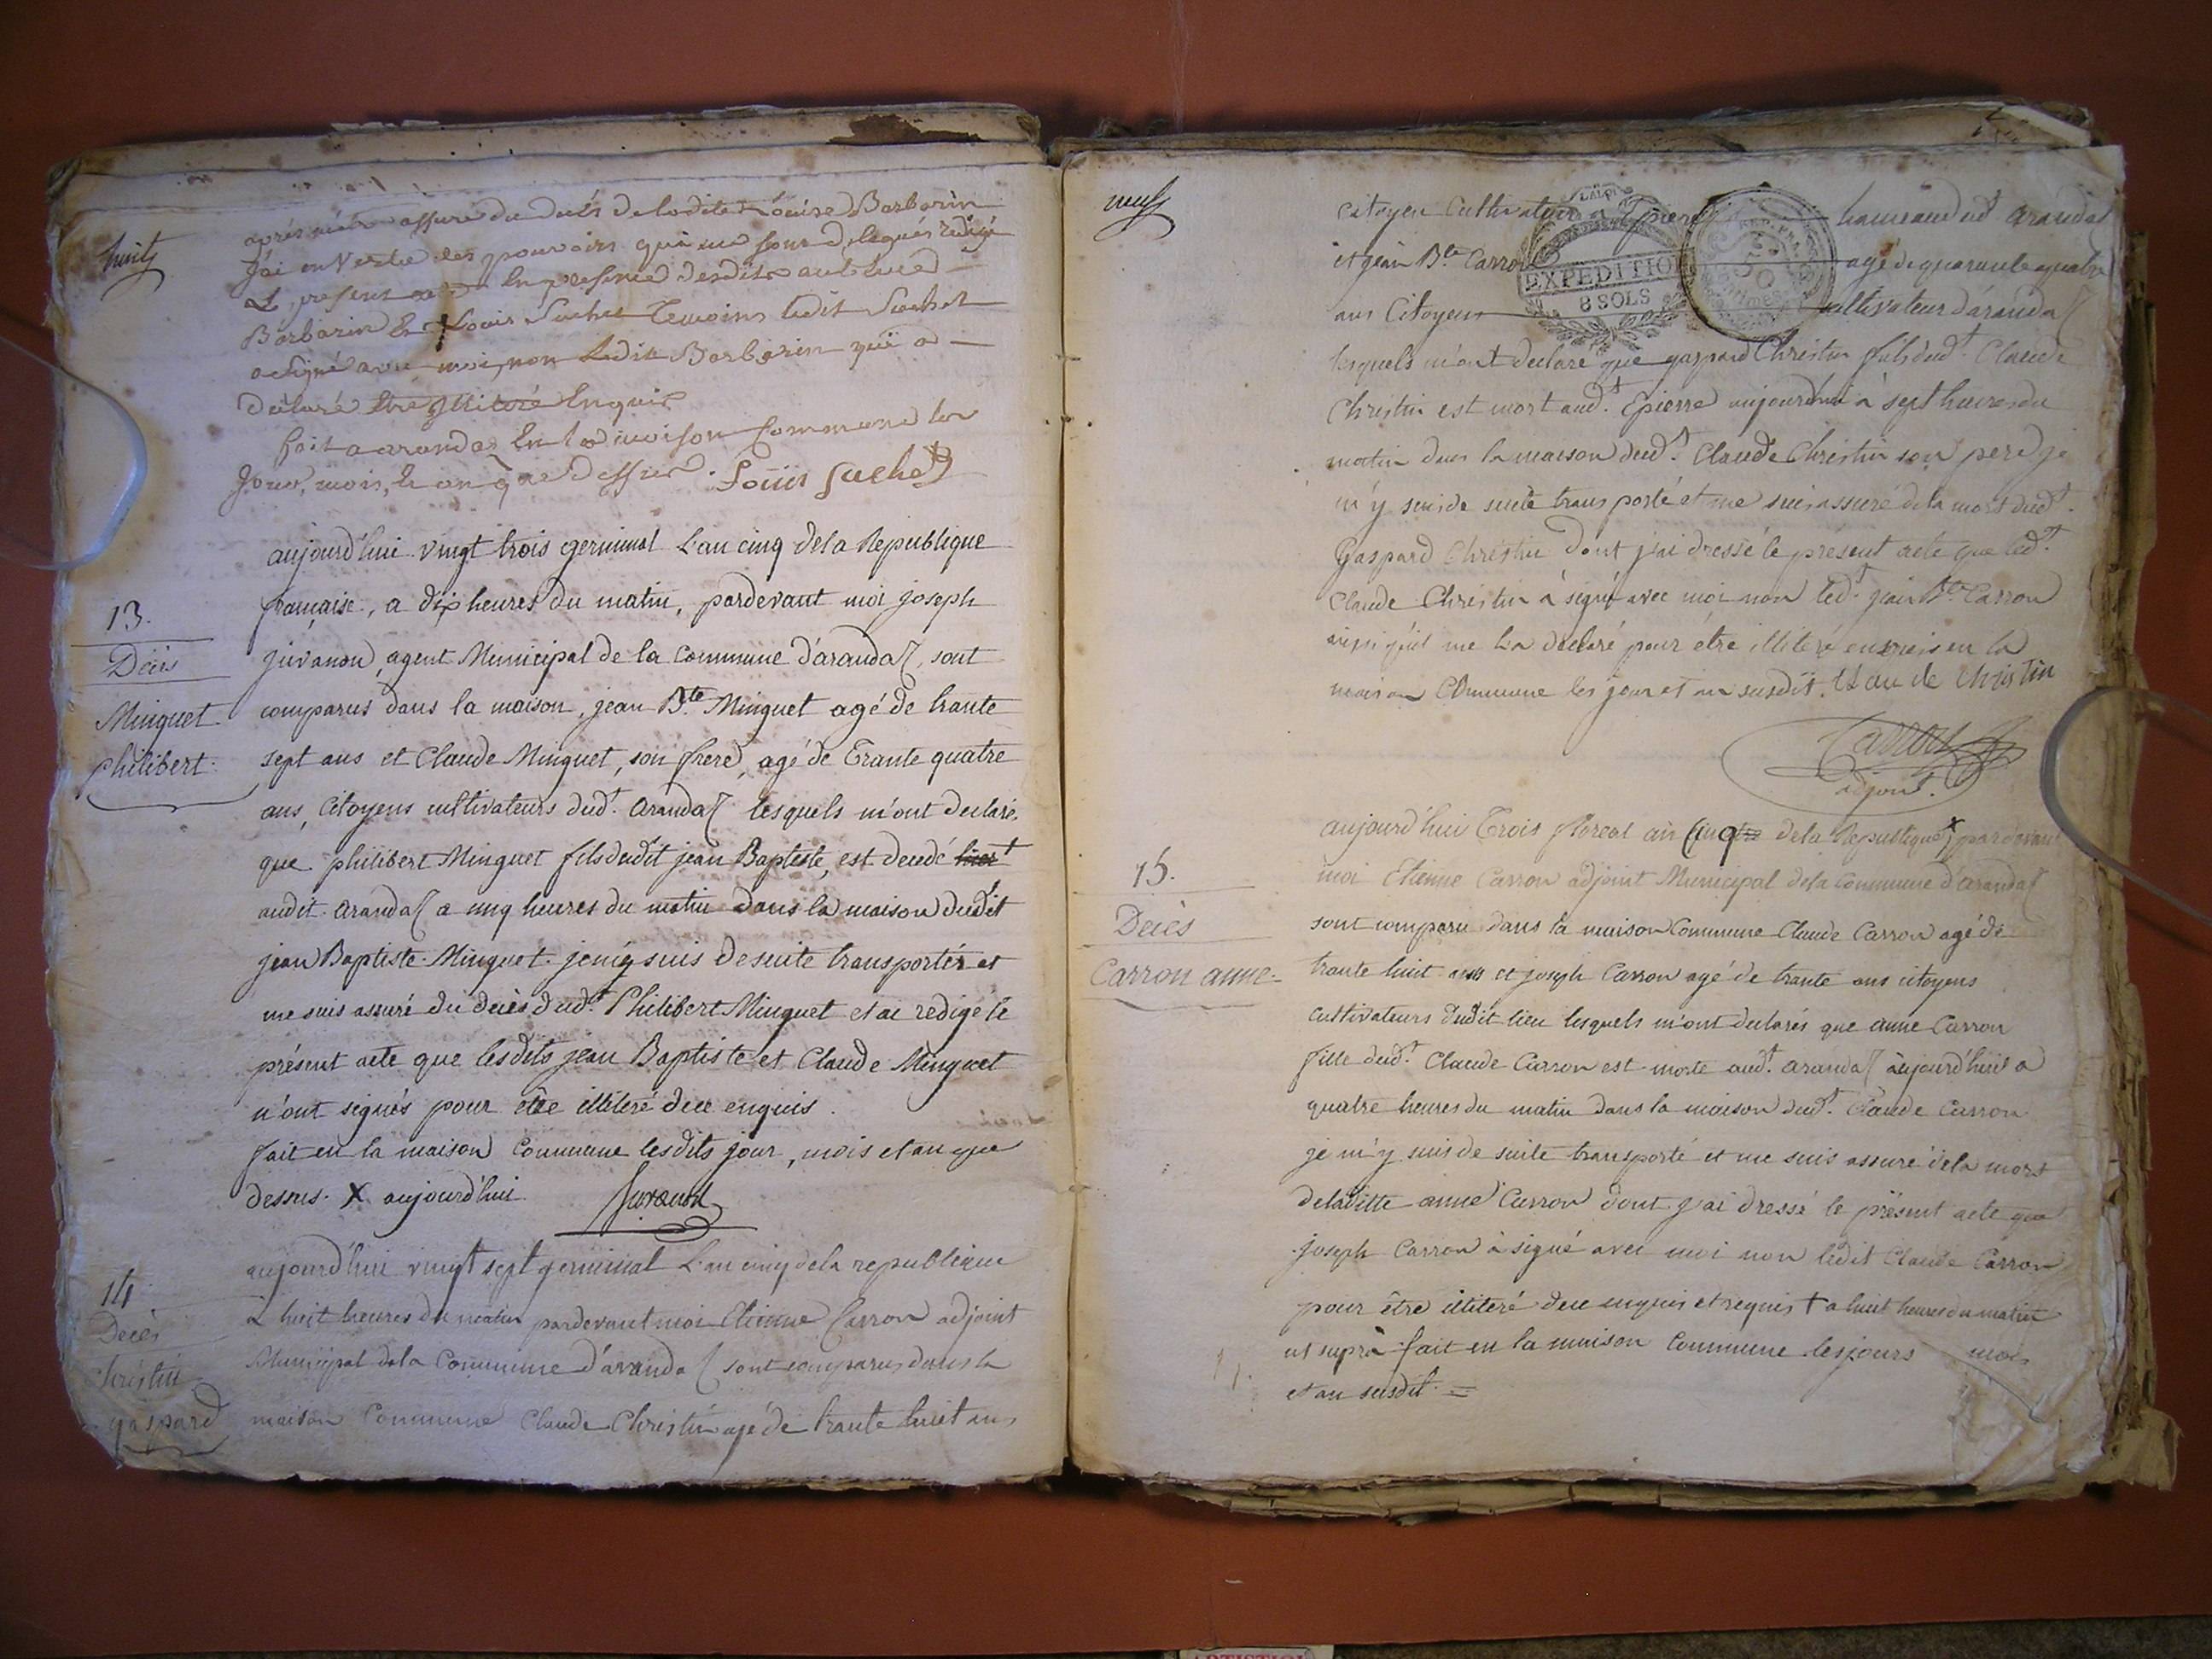 huit
après m'être assuré du decés de ladite Loüise Barbarin
J'ai en Vertu des pouvoirs qui me sont delegués rédigé
Le present acte En presence desdits
Barbarin Et Louis Suchet Temoins ledit Suchet
a signé avec moi, non Ledit Barbarin qui a
déclaré Etre illiteré Enquis
fait a arandaz En la maison Commune les
Jour, mois, & an que Dessus. Loüis Suchet
13.
Décès
Minguet
philibert.
aujourd'hui vingt trois germinal L'an cinq dela Republique
française, a dix heures du matin, pardevant moi joseph
juvanon, agent Municipal de la Commune d'arandaz, sont
comparus dans la maison, jean Bte Minguet agé de trante
sept ans et Claude Minguet, son frere, agé de Trante quatre
ans, Citoyens cultivateurs dudt. arandaz lesquels m'ont declaré
que philibert Minguet fils dudit jean Baptiste, est decedé hier
audit arandaz a cinq heures du matin dans la maison dudit
jean Baptiste Minguet. je m'y suis de suite transportér et
me suis assuré du decès dudt Philibert Minguet et ai redigé le
présent acte que lesdits jean Baptiste et Claude Minguet
n'ont signés pour etre illiteré dece enquis.
fait en la maison Commune lesdits jour, mois et an que
dessus. X aujourd'hui juvanon
14
Decès
Christin
gaspard
aujourd'hui vingt sept germinal L'an cinq dela republique
à huit heures du matin pardevant moi Etienne Carron adjoint
Municipal dela Commune d'arandaz sont comparus dans la
maison Commune Claude Christin agé de trante huit ans
neuf
EXPEDITION
8 SOLS
citoyen Cultivateur a Epierre hameau dudt arandaz
et jean Bte Carron agé de quarante quatre
ans Citoyen cultivateur d'arandaz
lesquels m'ont declaré que gaspard Christin fils dudt. Claude
Christin est mort audt. Epierre aujourd'hui à sept heures du
matin dans la maison dudt. Claude Christin son pere je
m'y suis de suite transporté et me suis assuré dela mort dudt.
Gaspard Christin dont j'ai dressé le présent acte que ledt.
Claude Christin à signé avec moi non ledt. jean Bte Carron
ainsi qu'il me la declaré pour étre illiteré enquis en la
maison Commune les jour et an susdit. Claude Christin
Carron
adjoint.
15.
Decès
Carron anne
aujourd'hui Trois floreal an cinq dela Republique X pardevant
moi Etienne Carron adjoint Municipal dela Commune d'arandaz
sont comparu dans la maison Commune Claude Carron agé de
trante huit ans et joseph Carron agé de trante ans citoyens
cultivateurs dudit lieu lesquels m'ont declarés que anne Carron
fille dudt. Claude Carron est morte audt. arandaz aujourd'huit a
quatre heures du matin dans la maison dudt. Claude Carron
je m'y suis de suite transporté et me suis assuré dela mort
deladitte anne Carron dont j'ai dressé le présent acte que
joseph Carron à signé avec moi non ledit Claude Carron
pour être illiteré dece enquis et requis † a huit heures du matin
ut suprà fait en la maison Commune les jours mois
et an susdit. =